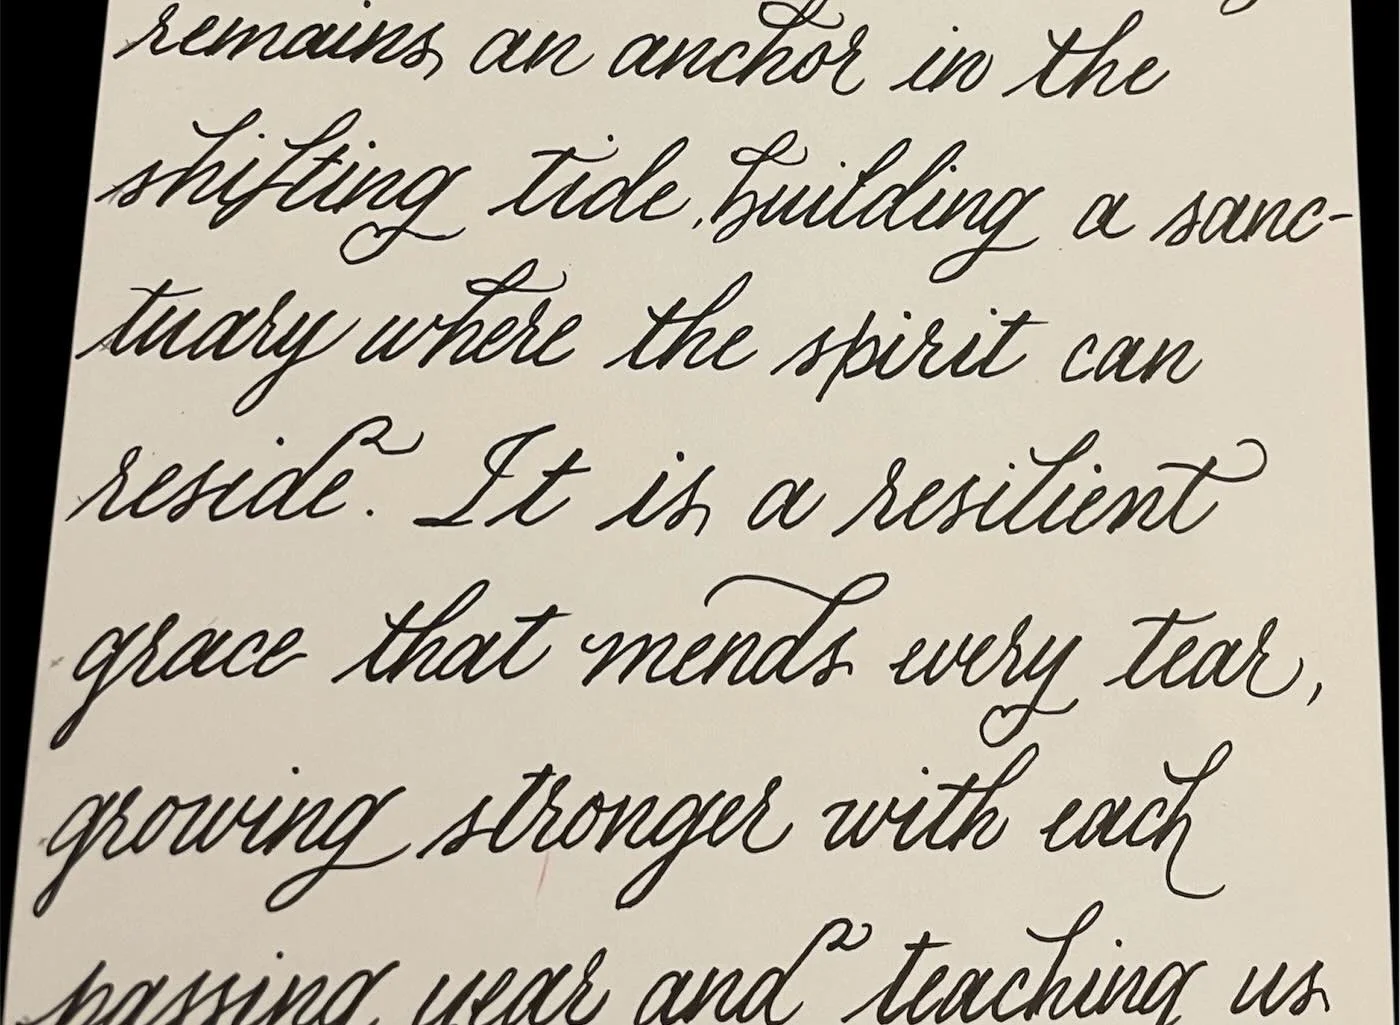 remains an anchor in the
shifting tide, building a sanc-
tuary where the spirit can
reside. It is a resilient
grace that mends every tear,
growing stronger with each
passing year and teaching us